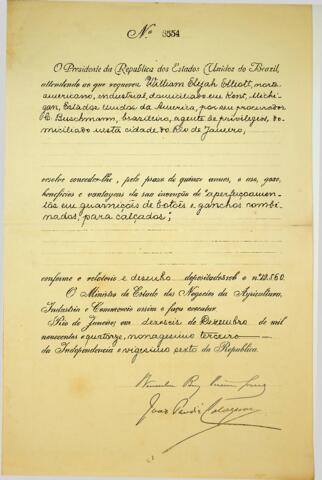 Nº 8554
O Presidente da Republica dos Estados Unidos do Brazil,
attendendo ao que requereu William Elijah Elliott, norte
americano, industrial, domiciliado em Kent, Michi-
gan, Estados Unidos da America, por seu procurador
C. Buschmann, brasileiro, agente de privilegios, do-
miciliado nesta cidade do Rio de Janeiro,
resolve conceder-lhe, pelo prazo de quinze annos, o uso, gozo,
beneficios e vantagens da sua invenção de "aperfeiçoamen-
tos em guarnições de botões e ganchos combi-
nados, para calçados",
conforme o relatorio e desenho depositados sob o nº 12.560.
O Ministro de Estado dos Negocios da Agricultura,
Industria e Commercio assim o faça executar.
Rio de Janeiro, em dezeseis de Dezembro de mil
novecentos e quatorze, nonagesimo terceiro
da Independencia e vigesimo sexto da Republica.